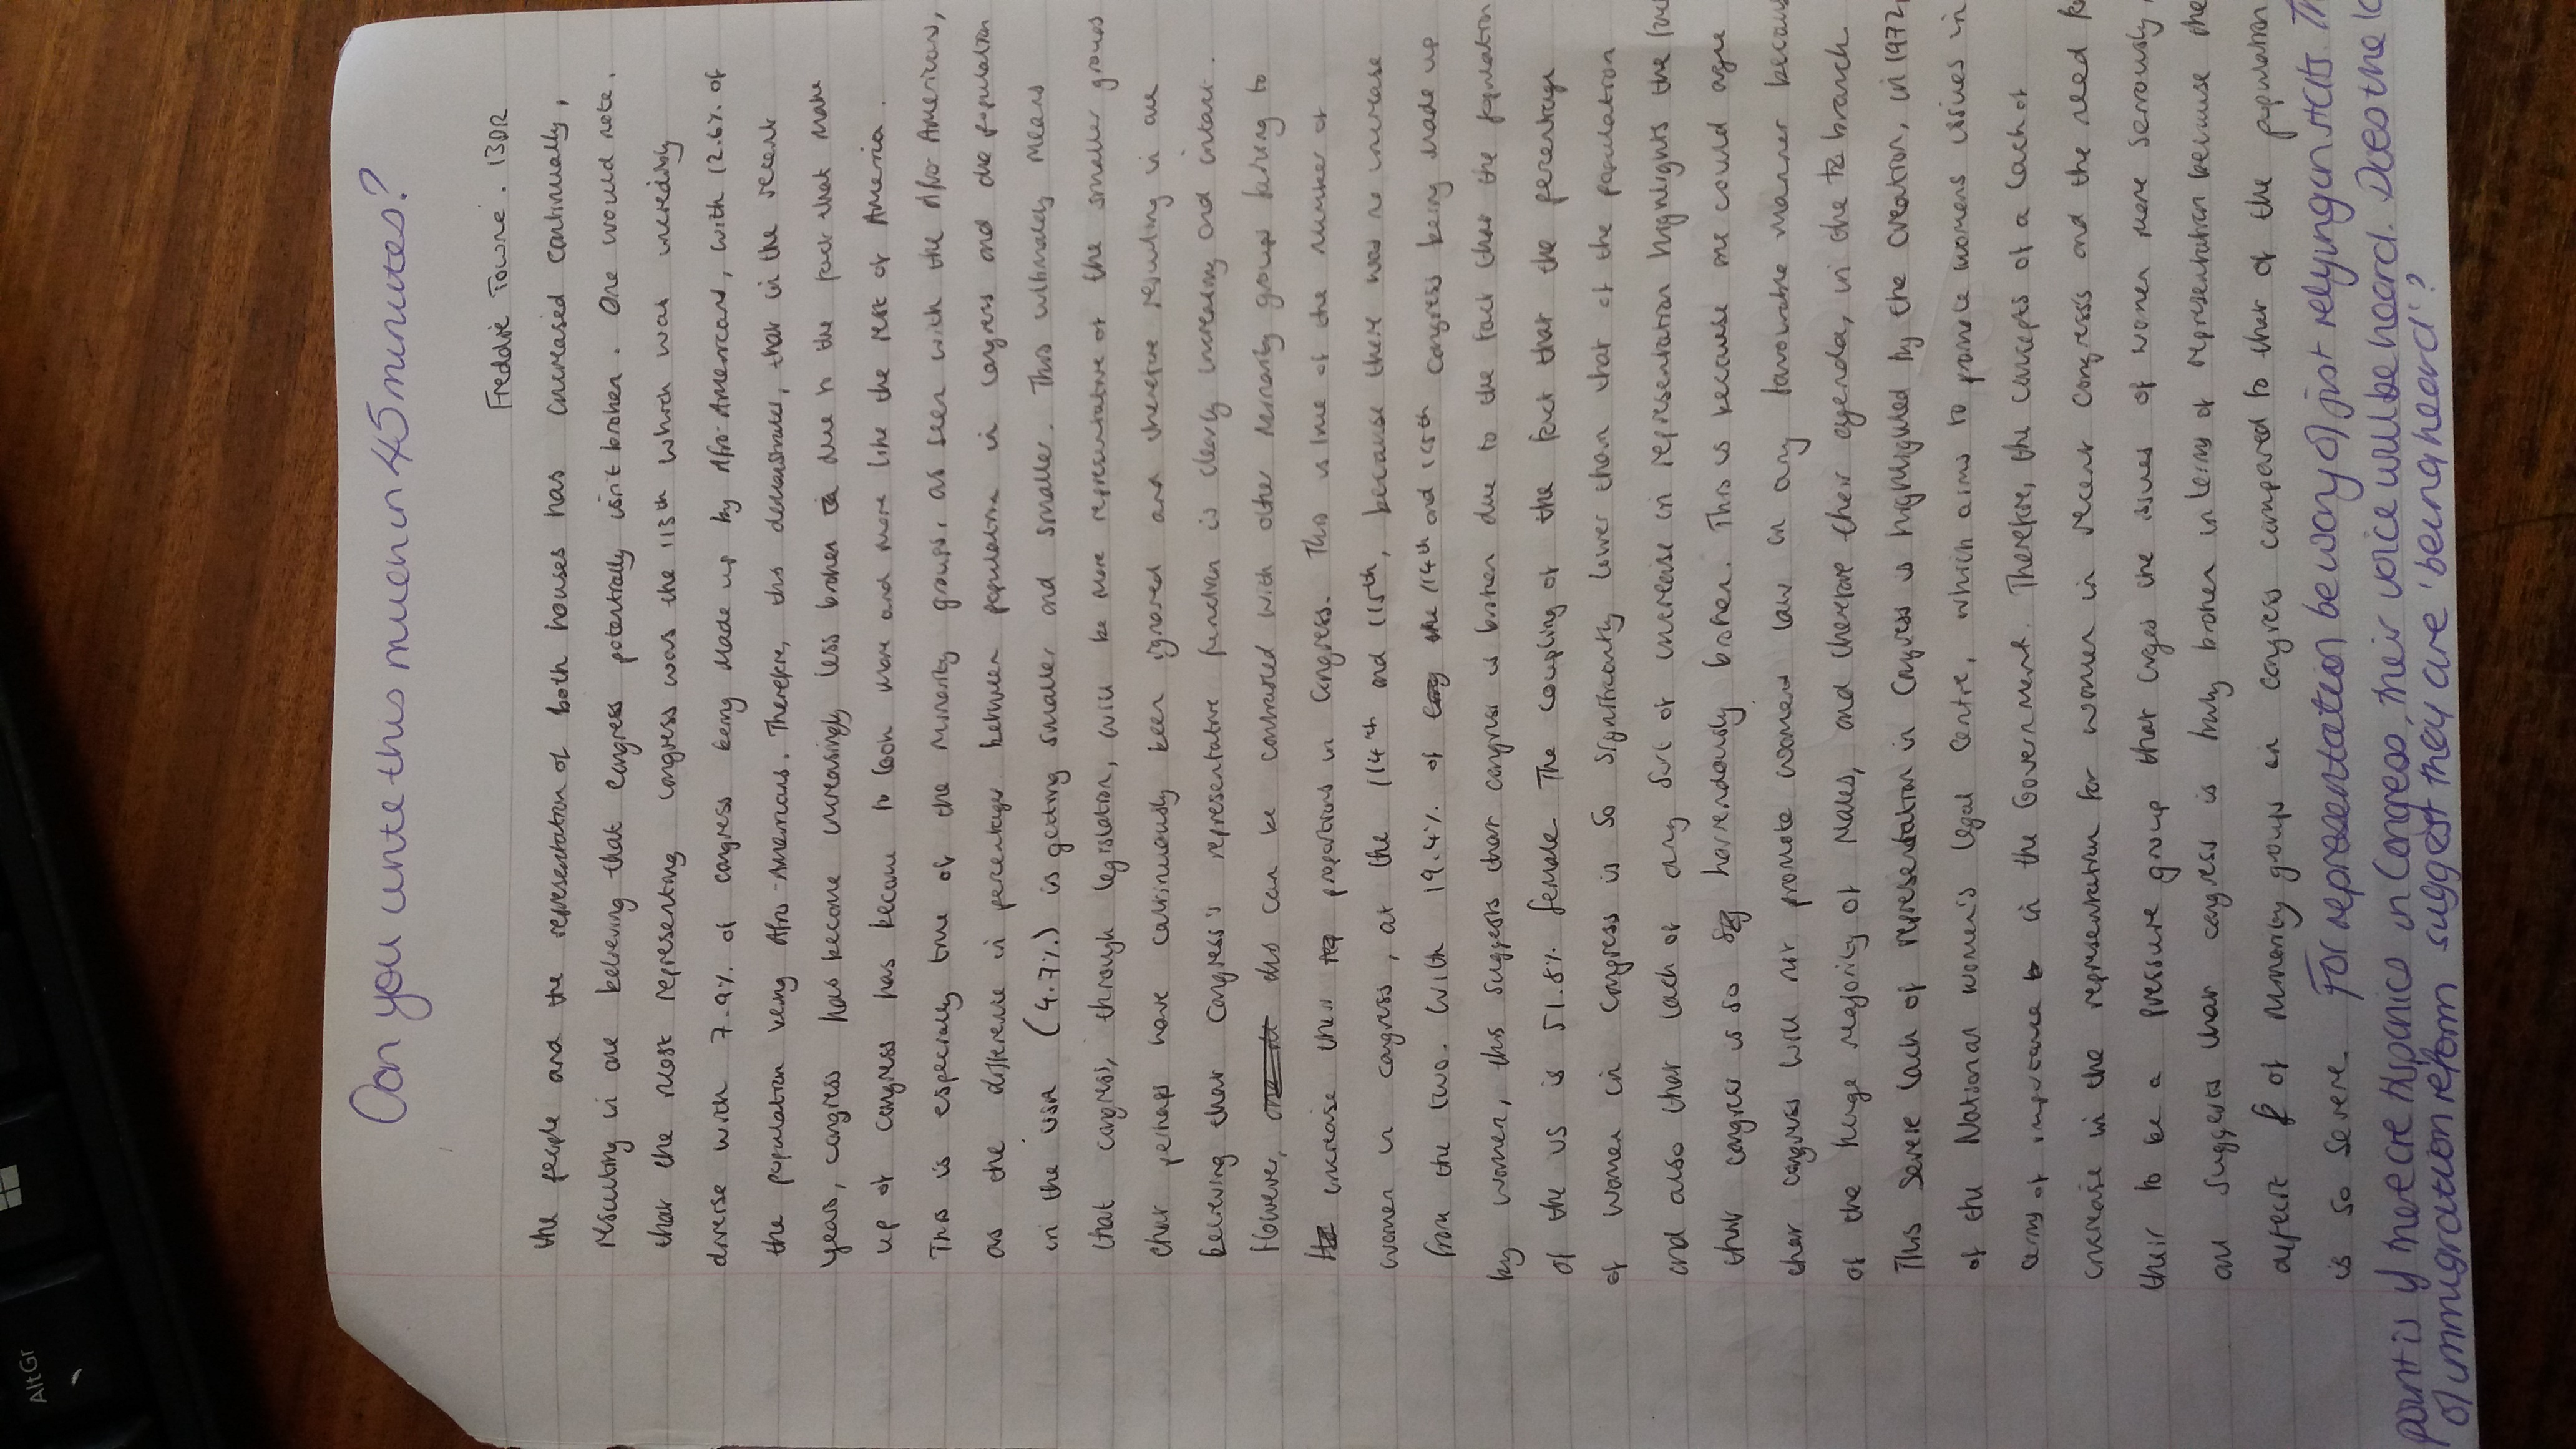 Can you write this much in 45 minutes?
Freddie Towne. 13DR
the people and the representation of both houses has increased continually,
resulting in one believing that congress potentially isn't broken. One would note,
that the most representing congress was the 115th which was incredibly
diverse with 7.9% of congress being made up by Afro-Americans, with 12.6% of
the population being Afro-Americans. Therefore, this demonstrates, that in the recent
years, congress has become increasingly less broken due to the fact that make
up of congress has become to look more and more like the rest of America.
This is especially true of the minority groups, as seen with the Afro Americans,
as the difference in percentages between population in congress and the population
in the USA (4.7%) is getting smaller and smaller. This ultimately means
that congress, through legislation, will be more representative of the smaller groups
that perhaps have continuously been ignored and therefore resulting in one
believing that congress's representative function is clearly increasing and intact.
However, this can be contrasted with other minority groups failing to
increase their proportions in congress. This is true of the number of
women in congress, at the 114th and 115th, because there was no increase
from the two. With 19.4% of the 114th and 115th congress being made up
by women, this suggests that congress is broken due to the fact that the population
of the US is 51.8% female. The coupling of the fact that the percentage
of women in congress is so significantly lower than that of the population
and also that lack of any sort of increase in representation highlights the
that congress is so horrendously broken. This is because one could argue
that congress will not promote womens law in any favourable manner
of the huge majority of males, and therefore their agenda, in the branch
This severe lack of representation in Congress is highlighted by the creation, in 1972,
of the National women's legal centre, which aims to promote womens issues in
terms of importance in the Government. Therefore, the concepts of a lack of
increase in the representation for women in recent congress and the need for
their to be a pressure group that urges the issues of women more seriously,
all suggests that congress is truly broken in terms of representation because the
deficit of minority groups in congress compared to that of the population
is so severe. For representation be wary of just relying on stats.
point is if there are Hispanics in Congress, their voice will be heard. Does the
of immigration reform suggest they are 'being heard'?